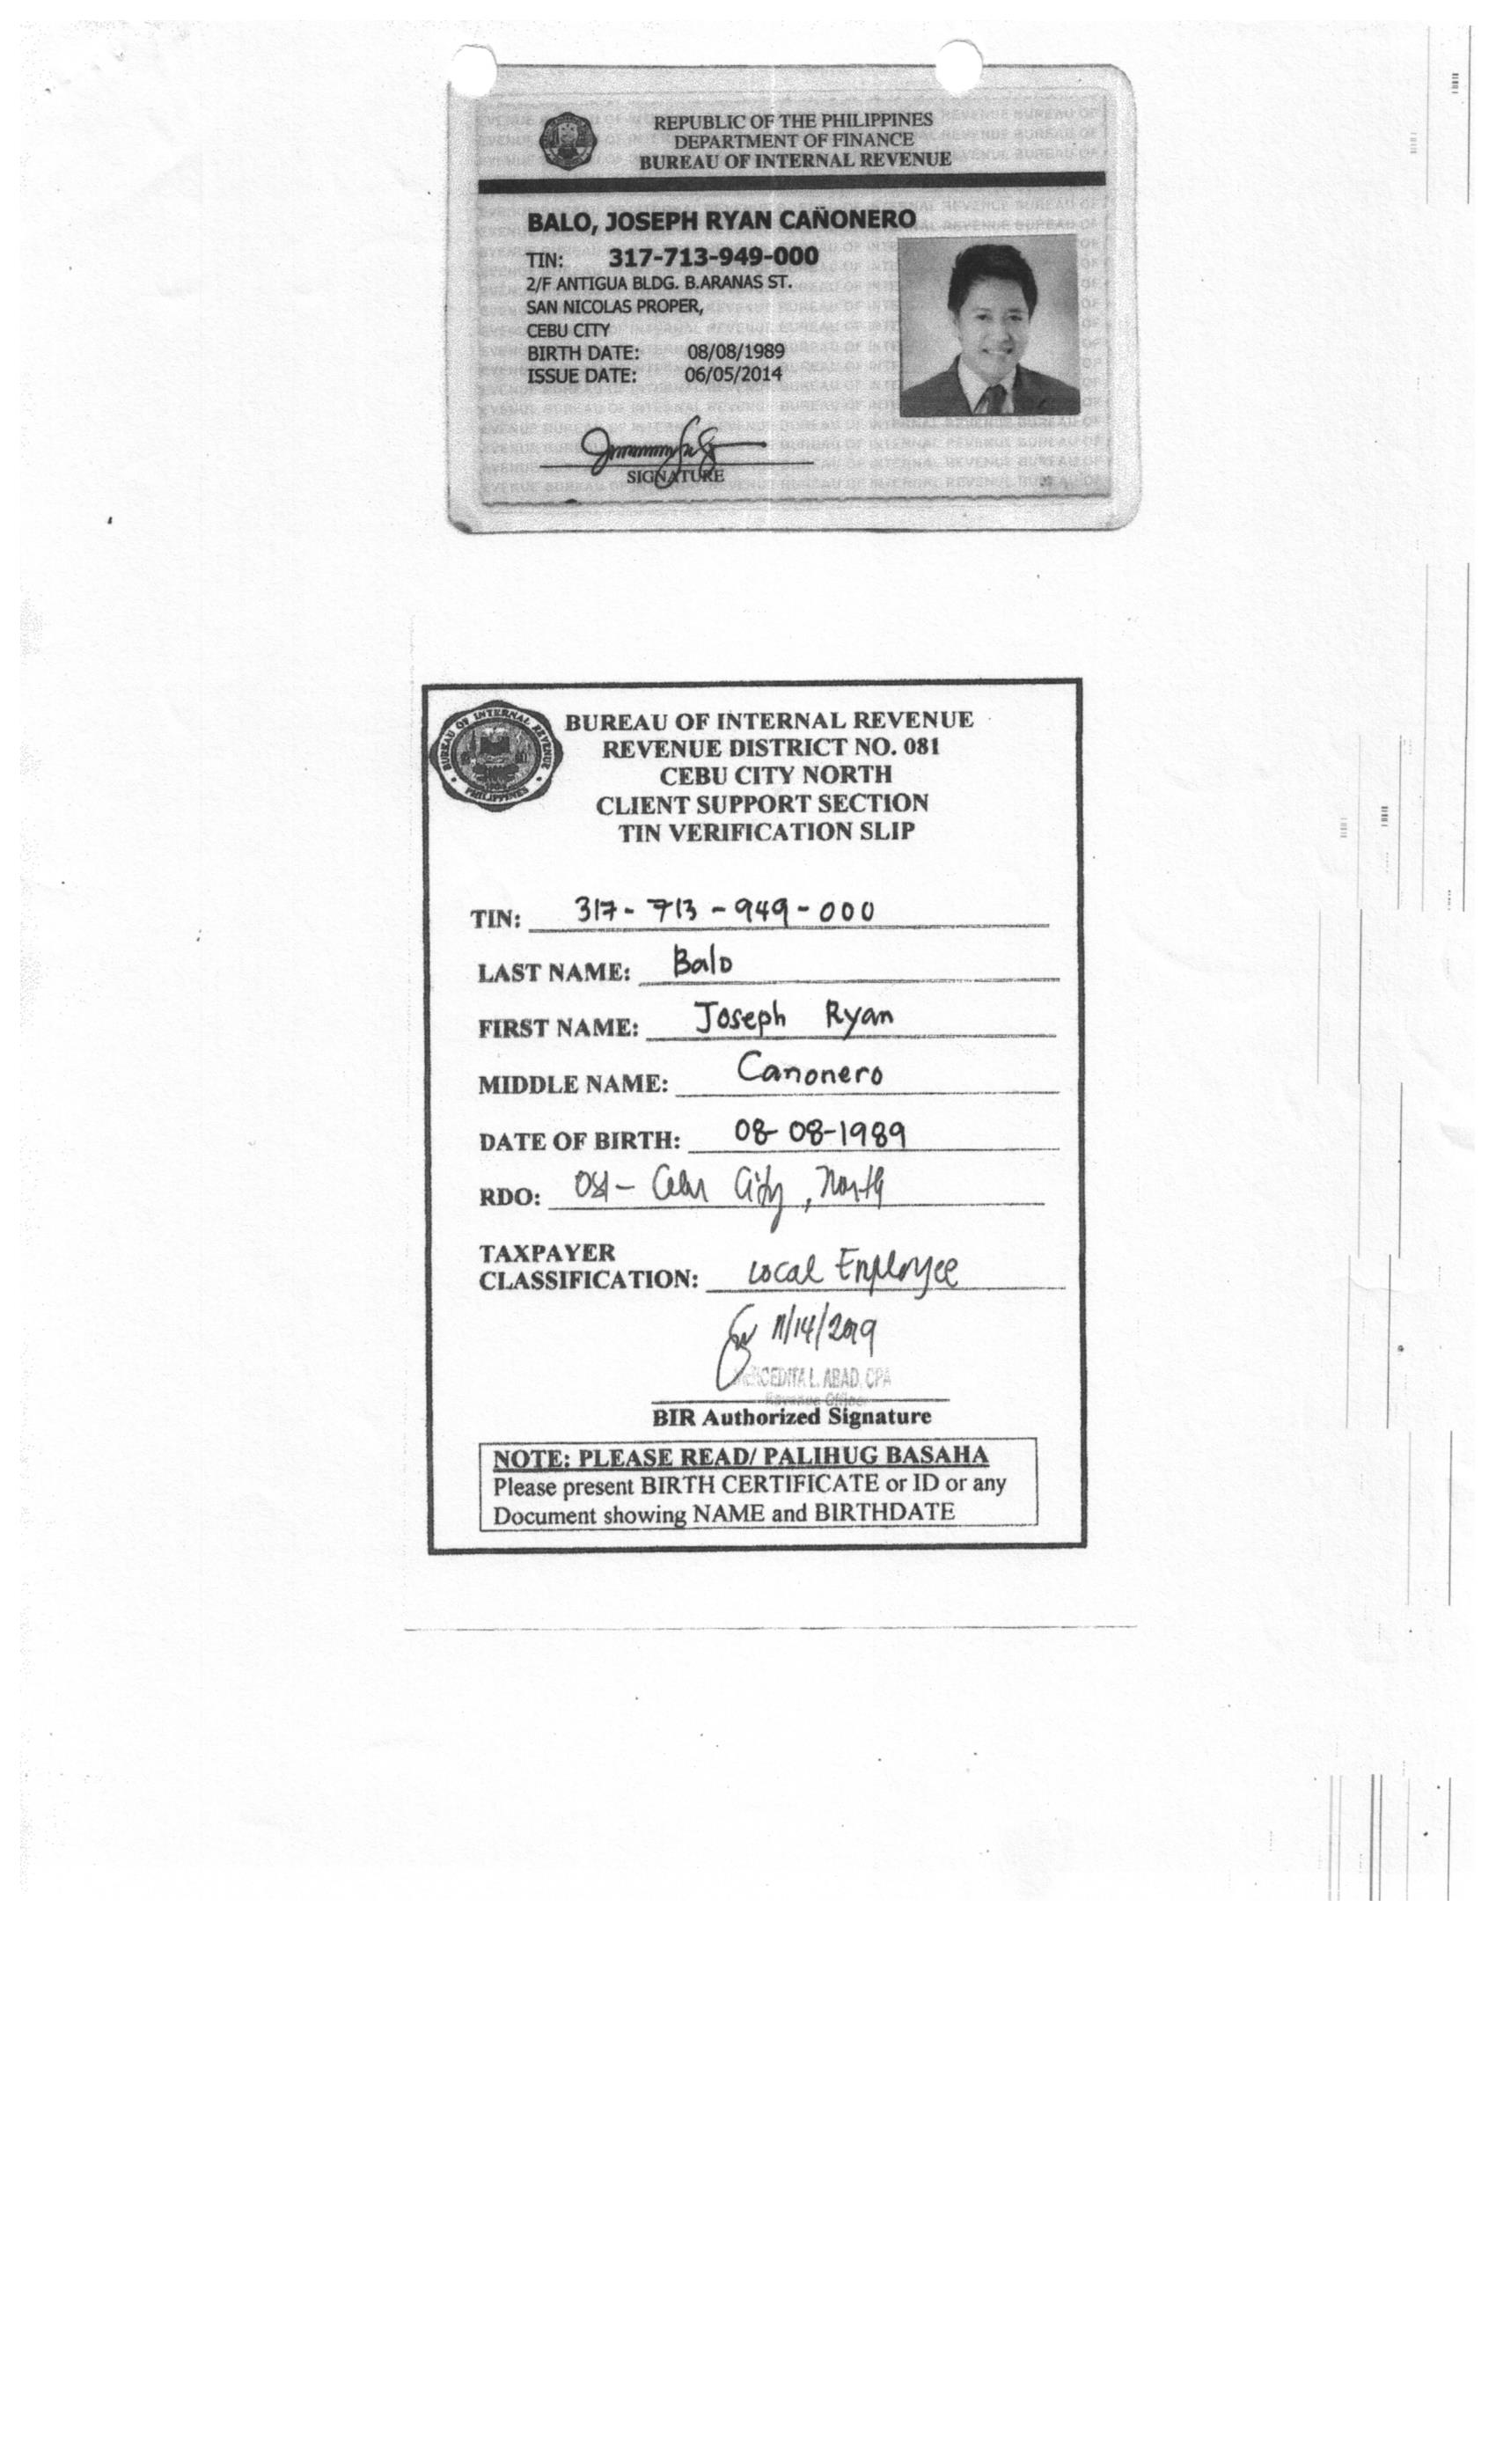 REPUBLIC OF THE PHILIPPINES
DEPARTMENT OF FINANCE
BUREAU OF INTERNAL REVENUE
BALO, JOSEPH RYAN CAÑONERO
TIN: 317-713-949-000
2/F ANTIGUA BLDG. B.ARANAS ST.
SAN NICOLAS PROPER,
CEBU CITY
BIRTH DATE: 08/08/1989
ISSUE DATE: 06/05/2014
SIGNATURE
BUREAU OF INTERNAL REVENUE
PHILIPPINES
BUREAU OF INTERNAL REVENUE
REVENUE DISTRICT NO. 081
CEBU CITY NORTH
CLIENT SUPPORT SECTION
TIN VERIFICATION SLIP
TIN: 317-713-949-000
LAST NAME: Balo
FIRST NAME: Joseph Ryan
MIDDLE NAME: Canonero
DATE OF BIRTH: 08-08-1989
RDO: 081- Cebu City, North
TAXPAYER
CLASSIFICATION: Local Employee
11/14/2019
MERCEDITA L. ABAD, CPA
Revenue Officer
BIR Authorized Signature
NOTE: PLEASE READ/ PALIHUG BASAHA
Please present BIRTH CERTIFICATE or ID or any
Document showing NAME and BIRTHDATE